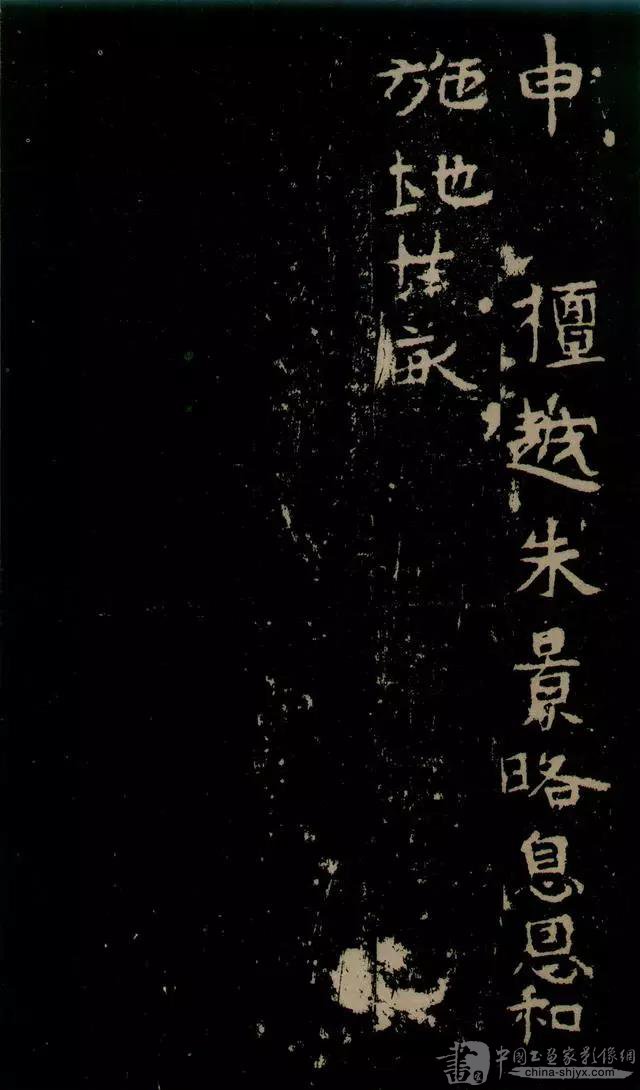 申 檀越朱景略息思和
施地廿畝
書 中國书画家影像網
china-shjyx.com